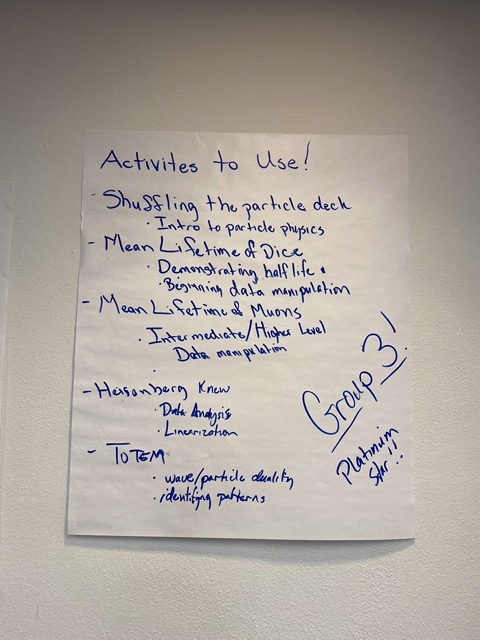 Activites to Use!
- Shuffling the particle deck
· Intro to particle physics
- Mean Lifetime of Dice
· Demonstrating half life
· Beginning data manipulation
- Mean Lifetime of Muons
· Intermediate/Higher Level
Data manipulation
·
- Heisenberg Knew
· Data Analysis
· Linearization
- TOTEM
· wave/particle duality
· identifying patterns
Group 3!
Platinum
Star!!